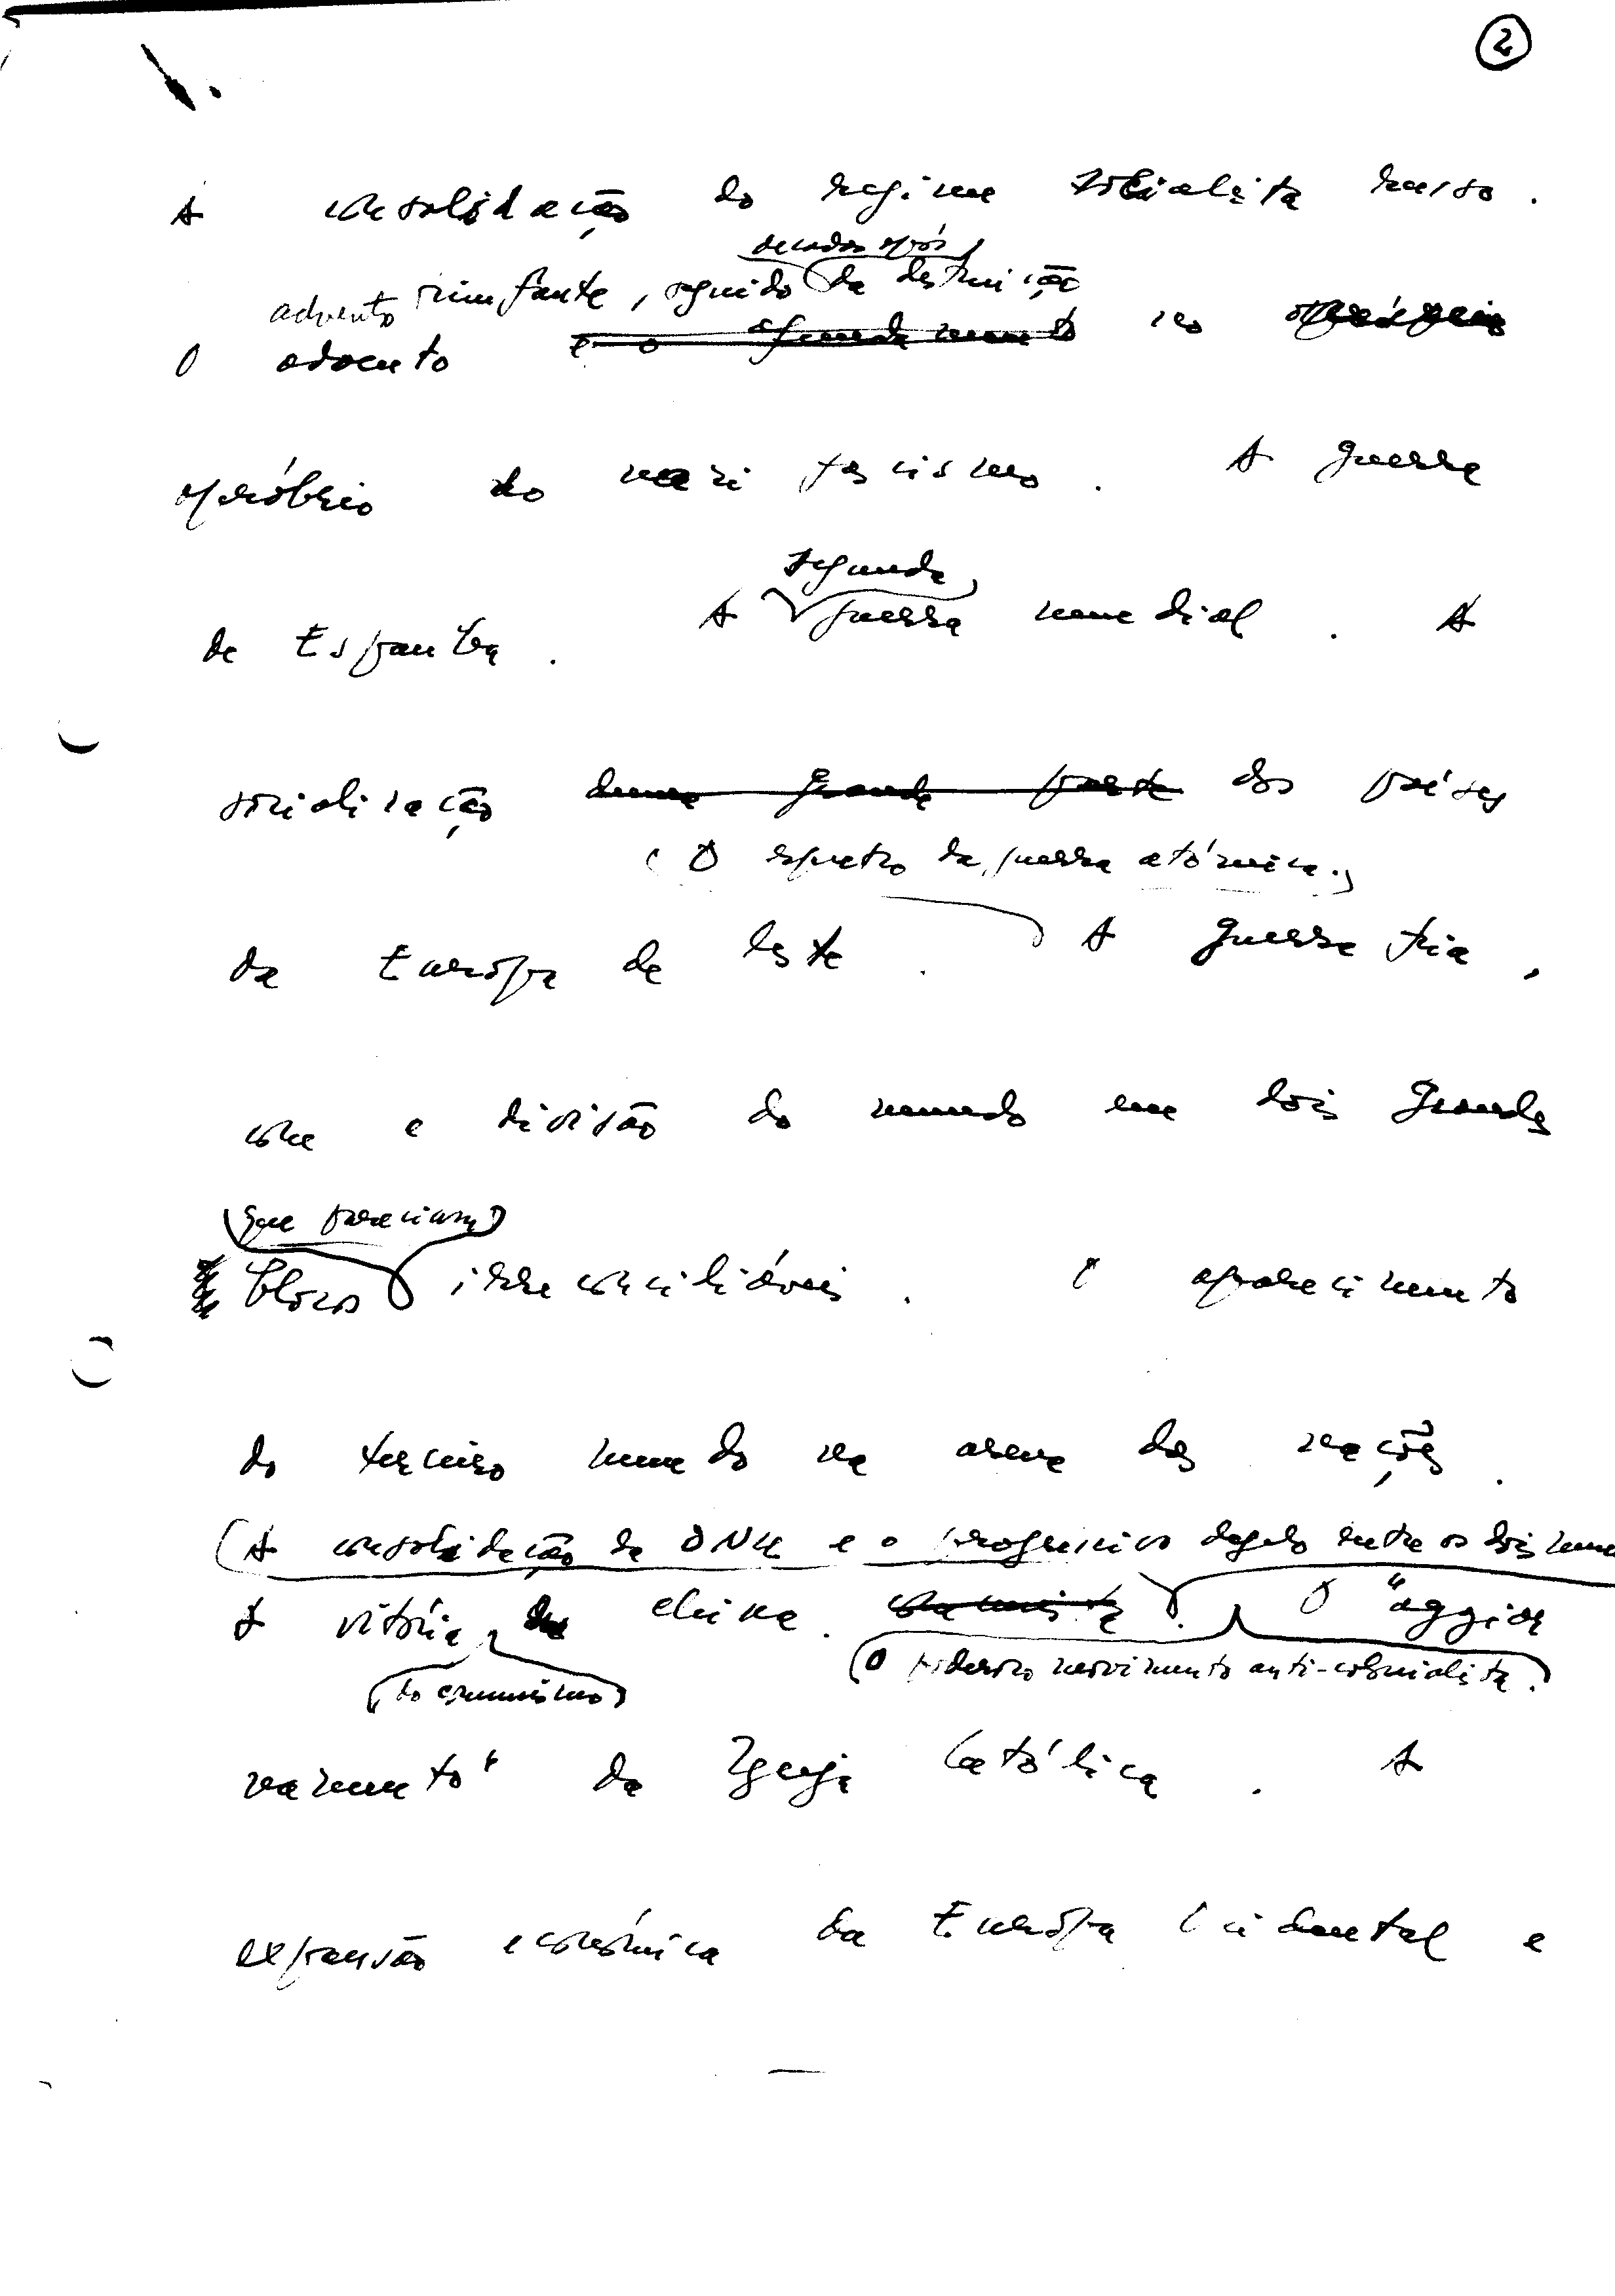 2
A consolidação do regime socialista russo.
decadas após
advento triunfante, seguido da destruição
O advento e o afundamento no opróbrio
opróbrio do nazi fascismo. A guerra
segunda
de Espanha. A guerra mundial. A
socialização duma grande parte dos países
(O espectro da guerra atómica.)
da Európa de leste. A guerra fria,
com a divisão do mundo em dois grandes
(que pareciam)
blocos irreconciliáveis. O aparecimento
do terceiro mundo na arena das nações.
(A consolidação da ONU e o progressivo degelo entre os dois
A vitória da China comunista. O "aggior
(O poderoso movimento anti-colonialista.)
(do comunismo)
namento" da Igreja Católica. A
expansão económica da Európa Ocidental e